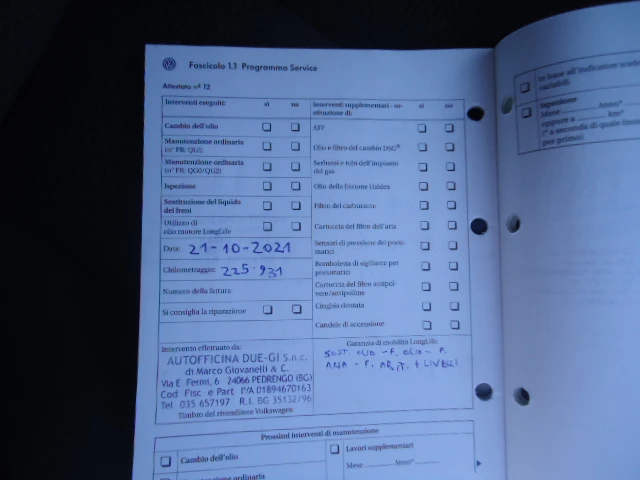 Fascicolo 1.1 Programma Service
Attestato nº 12
Interventi eseguiti: sì no
Cambio dell'olio
Manutenzione ordinaria
(nº PR: QG1)
Manutenzione ordinaria
(nº PR: QG0/QG2)
Ispezione
Sostituzione del liquido
dei freni
Utilizzo di
olio motore LongLife
Data: 21-10-2021
Chilometraggio: 225.931
Numero della fattura:
Si consiglia la riparazione
Interventi supplementari - so-
stituzione di: sì no
ATF
Olio e filtro del cambio DSG®
Serbatoi e tubi dell'impianto
del gas
Olio della frizione Haldex
Filtro del carburante
Cartuccia del filtro dell'aria
Sensori di pressione dei pneu-
matici
Bomboletta di sigillante per
pneumatici
Cartuccia del filtro antipol-
vere/antipolline
Cinghia dentata
Candele di accensione
Intervento effettuato da:
AUTOFFICINA DUE-GI S.n.c.
di Marco Giovanelli & C.
Via E. Fermi, 6 24066 PEDRENGO (BG)
Cod. Fisc. e Part. IVA 01894670163
Tel. 035 657197 R.I. BG 35132/96
Timbro del rivenditore Volkswagen
Garanzia di mobilità LongLife:
SOST OLIO - F. OLIO - F.
ARIA - F. + LIVELLI
Prossimi interventi di manutenzione
Cambio dell'olio
Lavori supplementari
Mese Anno*
ordinaria
in base all'indicatore
variabili
Ispezione
Mese Anno*
oppure a km*
(* a seconda di quale
per primo)